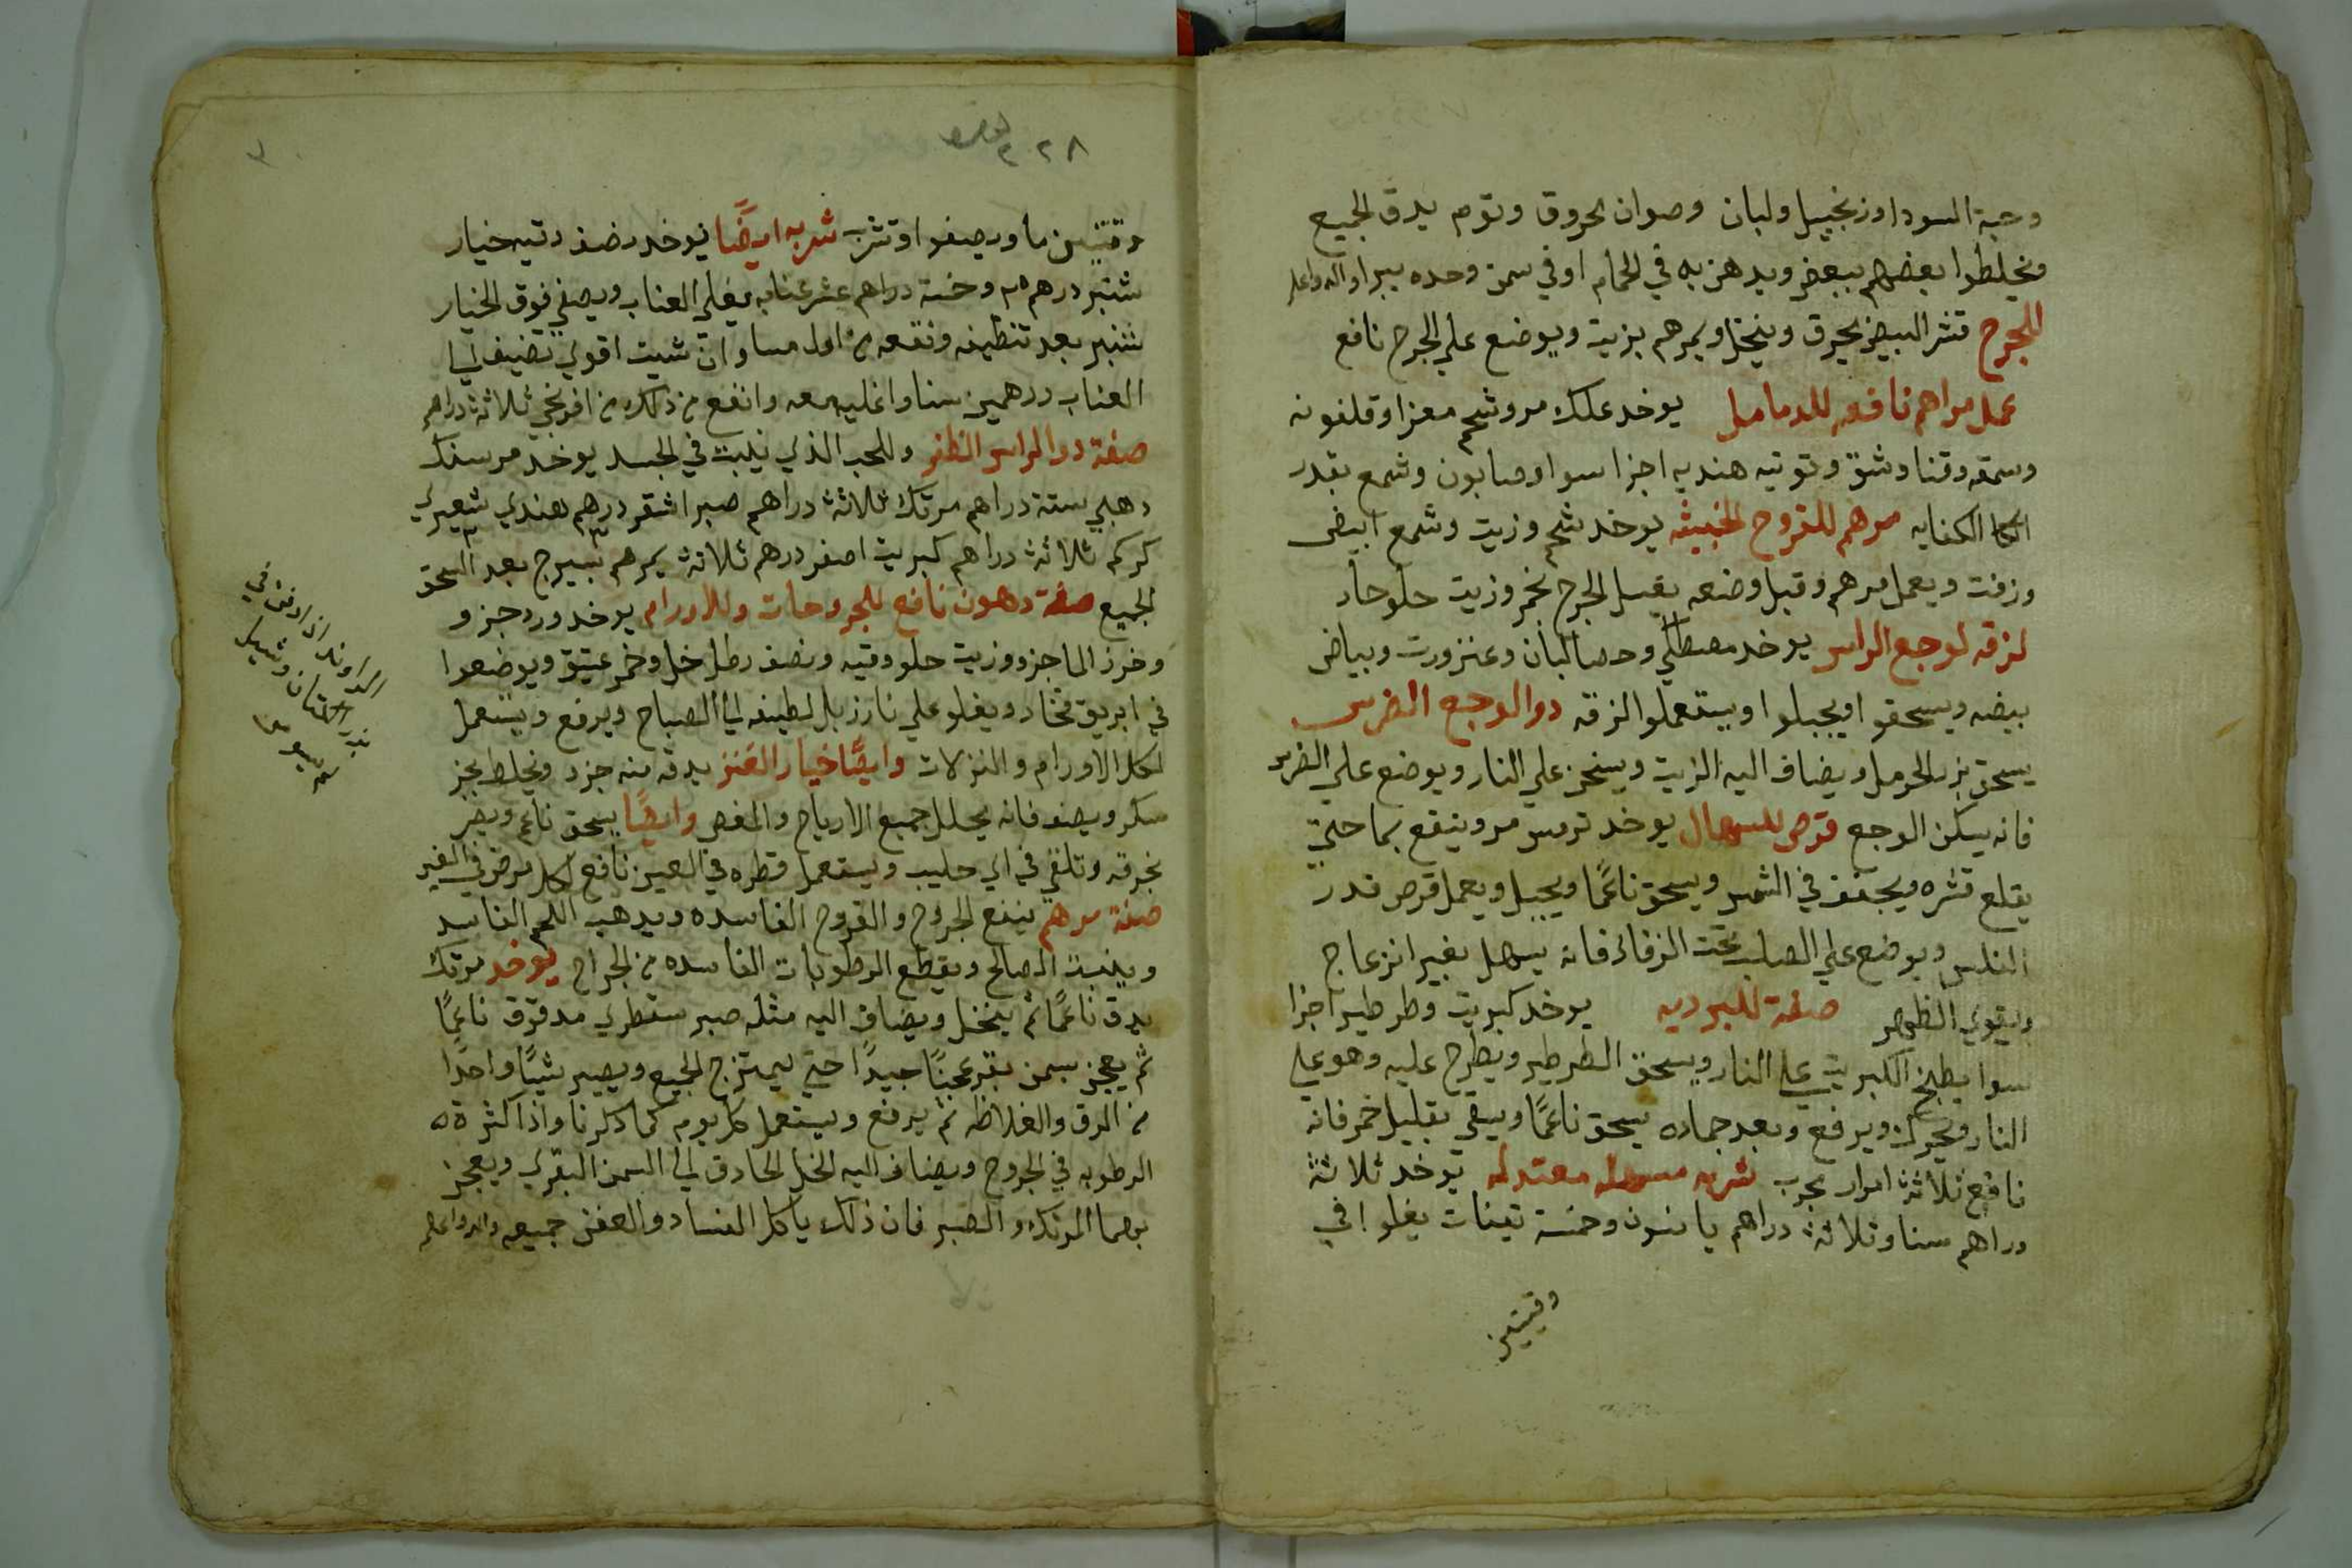 وحبة السودا وزنجبيل ولبان وصوان محروق وتوم يدق الجميع
ويخلطوا بعضهم ببعض ويدهن به في الحمام او في سمن وحده يبرا والله واعلم
للجرح قشر البيض يحرق وينخل ويمرهم بزيت ويوضع علي الجرح نافع
عمل مراهم نافعه للدمامل يوخد علك مر وشحم معزا وقلفونه
وسمقه وقنا وشق وتوتيه هنديه اجزا سوا وصابون وشمع بقدر
الكفايه مرهم للقروح الخبيثه يوخد شحم وزيت وشمع ابيض
وزفت ويعمل مرهم وقبل وضعه يغسل الجرح بخمر وزيت حلو حار
لزقه لوجع الراس يوخد مصطكي وحصا لبان وعنزروت وبياض
بيضه ويسحقوا ويجبلوا ويستعملوا لزقه دوا لوجع الضرس
يسحق بزر الحرمل ويضاف اليه الزيت ويسخن علي النار ويوضع علي الضرس
فانه يسكن الوجع قرص للسهال يوخد ترمس مر وينقع بما حتي
يقلع قشره ويجفف في الشمس ويسحق ناعمًا ويجبل ويعمل قرص قدر
الفلس ويوضع علي الصلب تحت الزفار فانه يسهل بغير انزعاج
ويقوي الظهر صفة للبرديه يوخد كبريت وطرطير اجزا
سوا يطبخ الكبريت علي النار ويسحق الطرطير ويطرح عليه وهو علي
النار ويحرك ويرفع وبعد جماده يسحق ناعمًا ويسقي بقليل خمر فانه
نافع ثلاثة امرار مجرب شربه مسهله معتدله يوخد ثلاثة
دراهم سنا وثلاثة دراهم يانسون وخمسة تينات يغلوا في
وقيتين
٢٨
وقيتين ما ويصفوا وتشرب شربه ايضًا يوخد نصف وقيه خيار
شنبر درهم وخمسة دراهم عشر عنابه يغلي العناب ويصفي فوق الخيار
شنبر بعد تنظيفه ونقعه من اول مسا وان شيت اقوي تضيف الي
العناب درهمين سنا واغليه معه وانفع من ذلك من افرنجي ثلاثة دراهم
صفة دوا لراس الظفر وللحب الذي ينبت في الجسد يوخد مرسنك
دهبي ستة دراهم مرتك ثلاثة دراهم صبر اشقر درهم هندي شعيري
كركم ثلاثة دراهم كبريت اصفر درهم ثلاثة يمرهم بسيرج بعد السحق
الجميع صفة دهون نافع للجروحات وللاورام يوخد ورد جزو
وخرز الما جزو وزيت حلو وقيه ونصف رطل خل وخمر عتيق ويوضعوا
في ابريق فخار ويغلو علي نار زبل لطيفه الي الصباح ويرفع ويستعمل
لكل الاورام والنزلات وايضًا خيار العنز يدق منه جزو ويخلط بجز
سكر ويصف فانه يحلل جميع الارياح والمغص وايضًا يسحق ناعم ويصر
بخرقه وتلقي في اي حليب ويستعمل قطره في العين نافع لكل مرض في الغير
صفة مرهم ينفع الجروح والقروح الفاسده ويدهب اللحم الفاسد
وينبت الصالح ويقطع الرطوبات الفاسده من الجراح يوخد مرتك
يدق ناعمًا ثم ينخل ويضاف اليه مثله صبر سقطري مدقوق ناعمًا
ثم يعجن بسمن بقر عجنًا جيدًا حتي ليمتزج الجميع ويصير شيًا واحدًا
من الدق والغلاظه ثم يرفع ويستعمل كل يوم كما ذكرنا واذا كثرة
الرطوبه في الجروح ويضاف اليه الخل الحادق الي السمن البقري ويعجن
بهما المرتك والصبر فان ذلك ياكل الفساد والعفن جميعه والله اعلم